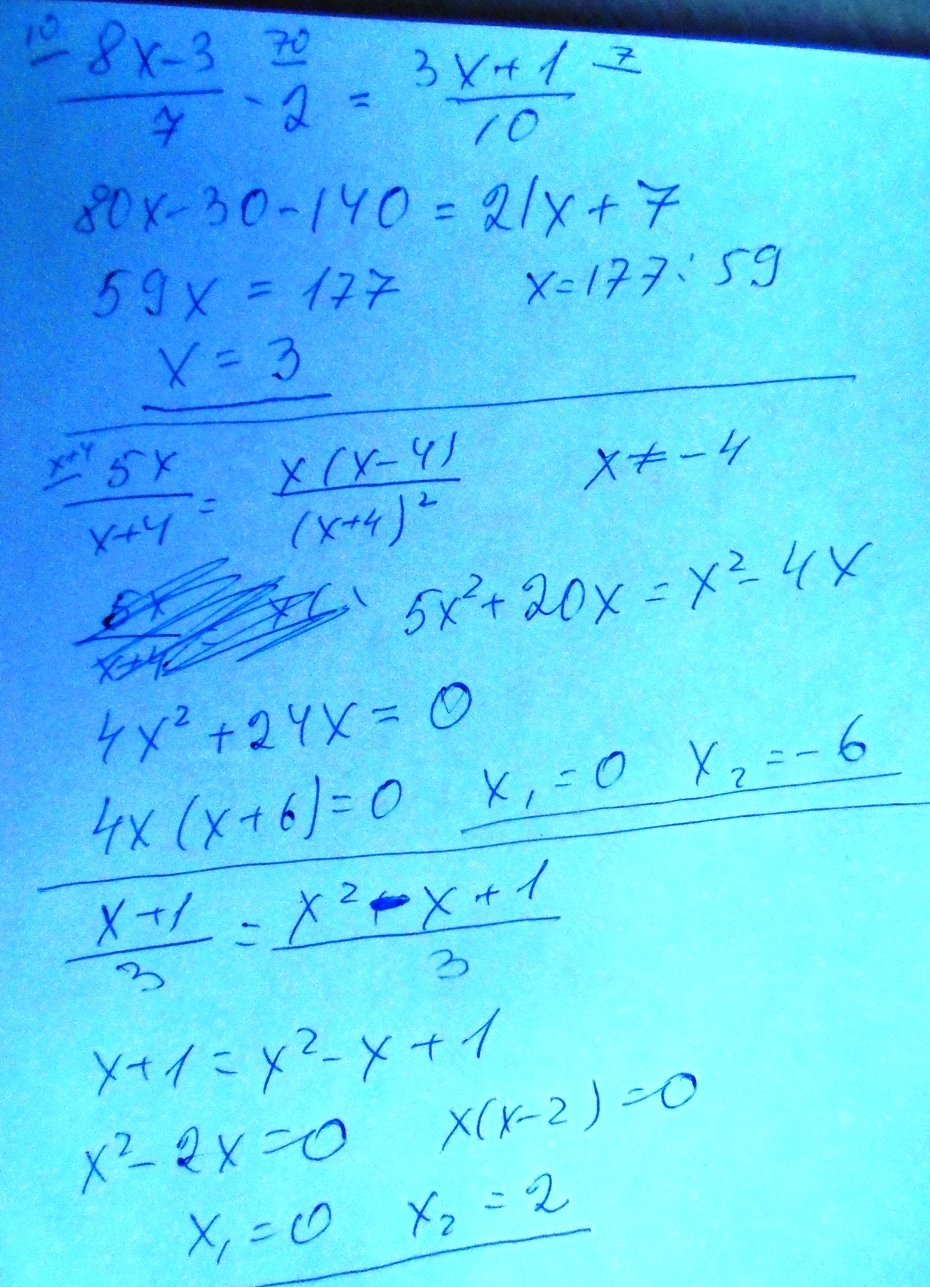 10 (8x-3)/7 - 2 70 = (3x+1)/10 7
80x-30-140 = 21x+7
59x = 177 x=177:59
x = 3
x+4 5x/(x+4) = x(x-4)/(x+4)² x≠-4
5x²+20x = x²-4x
4x²+24x = 0
4x(x+6)=0 x₁=0 x₂=-6
(x+1)/3 = (x²-x+1)/3
x+1=x²-x+1
x²-2x=0 x(x-2)=0
x₁=0 x₂=2